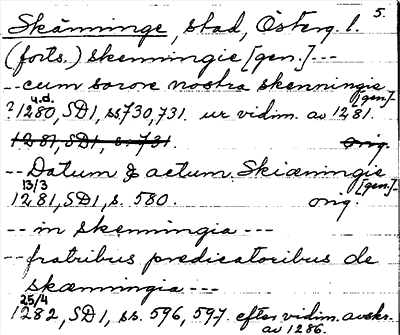 5.
Skänninge, stad, Österg. l.
(forts.) skenningie [gen.] ---
-- cum sorore nostra skenningie
[gen.]-
u.d.
? 1280, SD1, ss 730, 731. ur vidim. av 1281.
1281, SD1, s. 731. orig.
-- Datum & actum. Skiæningie
13/3 [gen.]-
1281, SD1, s. 580. orig.
-- in skenningia ---
-- fratribus predicatoribus de
skænningia ---
25/4
1282, SD1, ss. 596, 597. efter vidim. avskr.
av 1286.